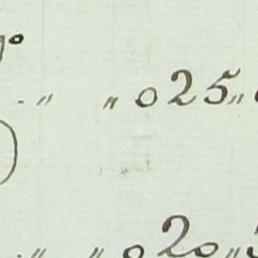 " " 025"
" " 020"